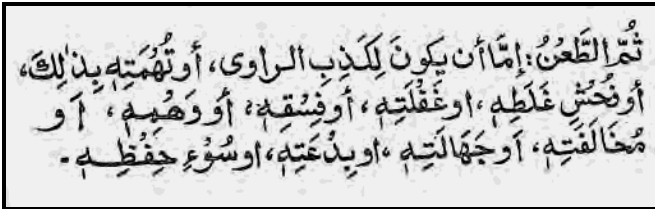 ثُمَّ الطَّعْنُ: إِمَّا أن يَكونَ لِكَذِبِ الراوى، أو تُهَمَتِهٖ بِذٰلِكَ،
أو فُحْشِ غَلَطِهٖ، او غَفْلَتِهٖ، أو فِسْقِهٖ، أو وَهْمِهٖ، أو
مُخَالَفَتِهٖ، أو جَهَالَتِهٖ، او بِدْعَتِهٖ، او سُوْءِ حِفْظِهٖ۔